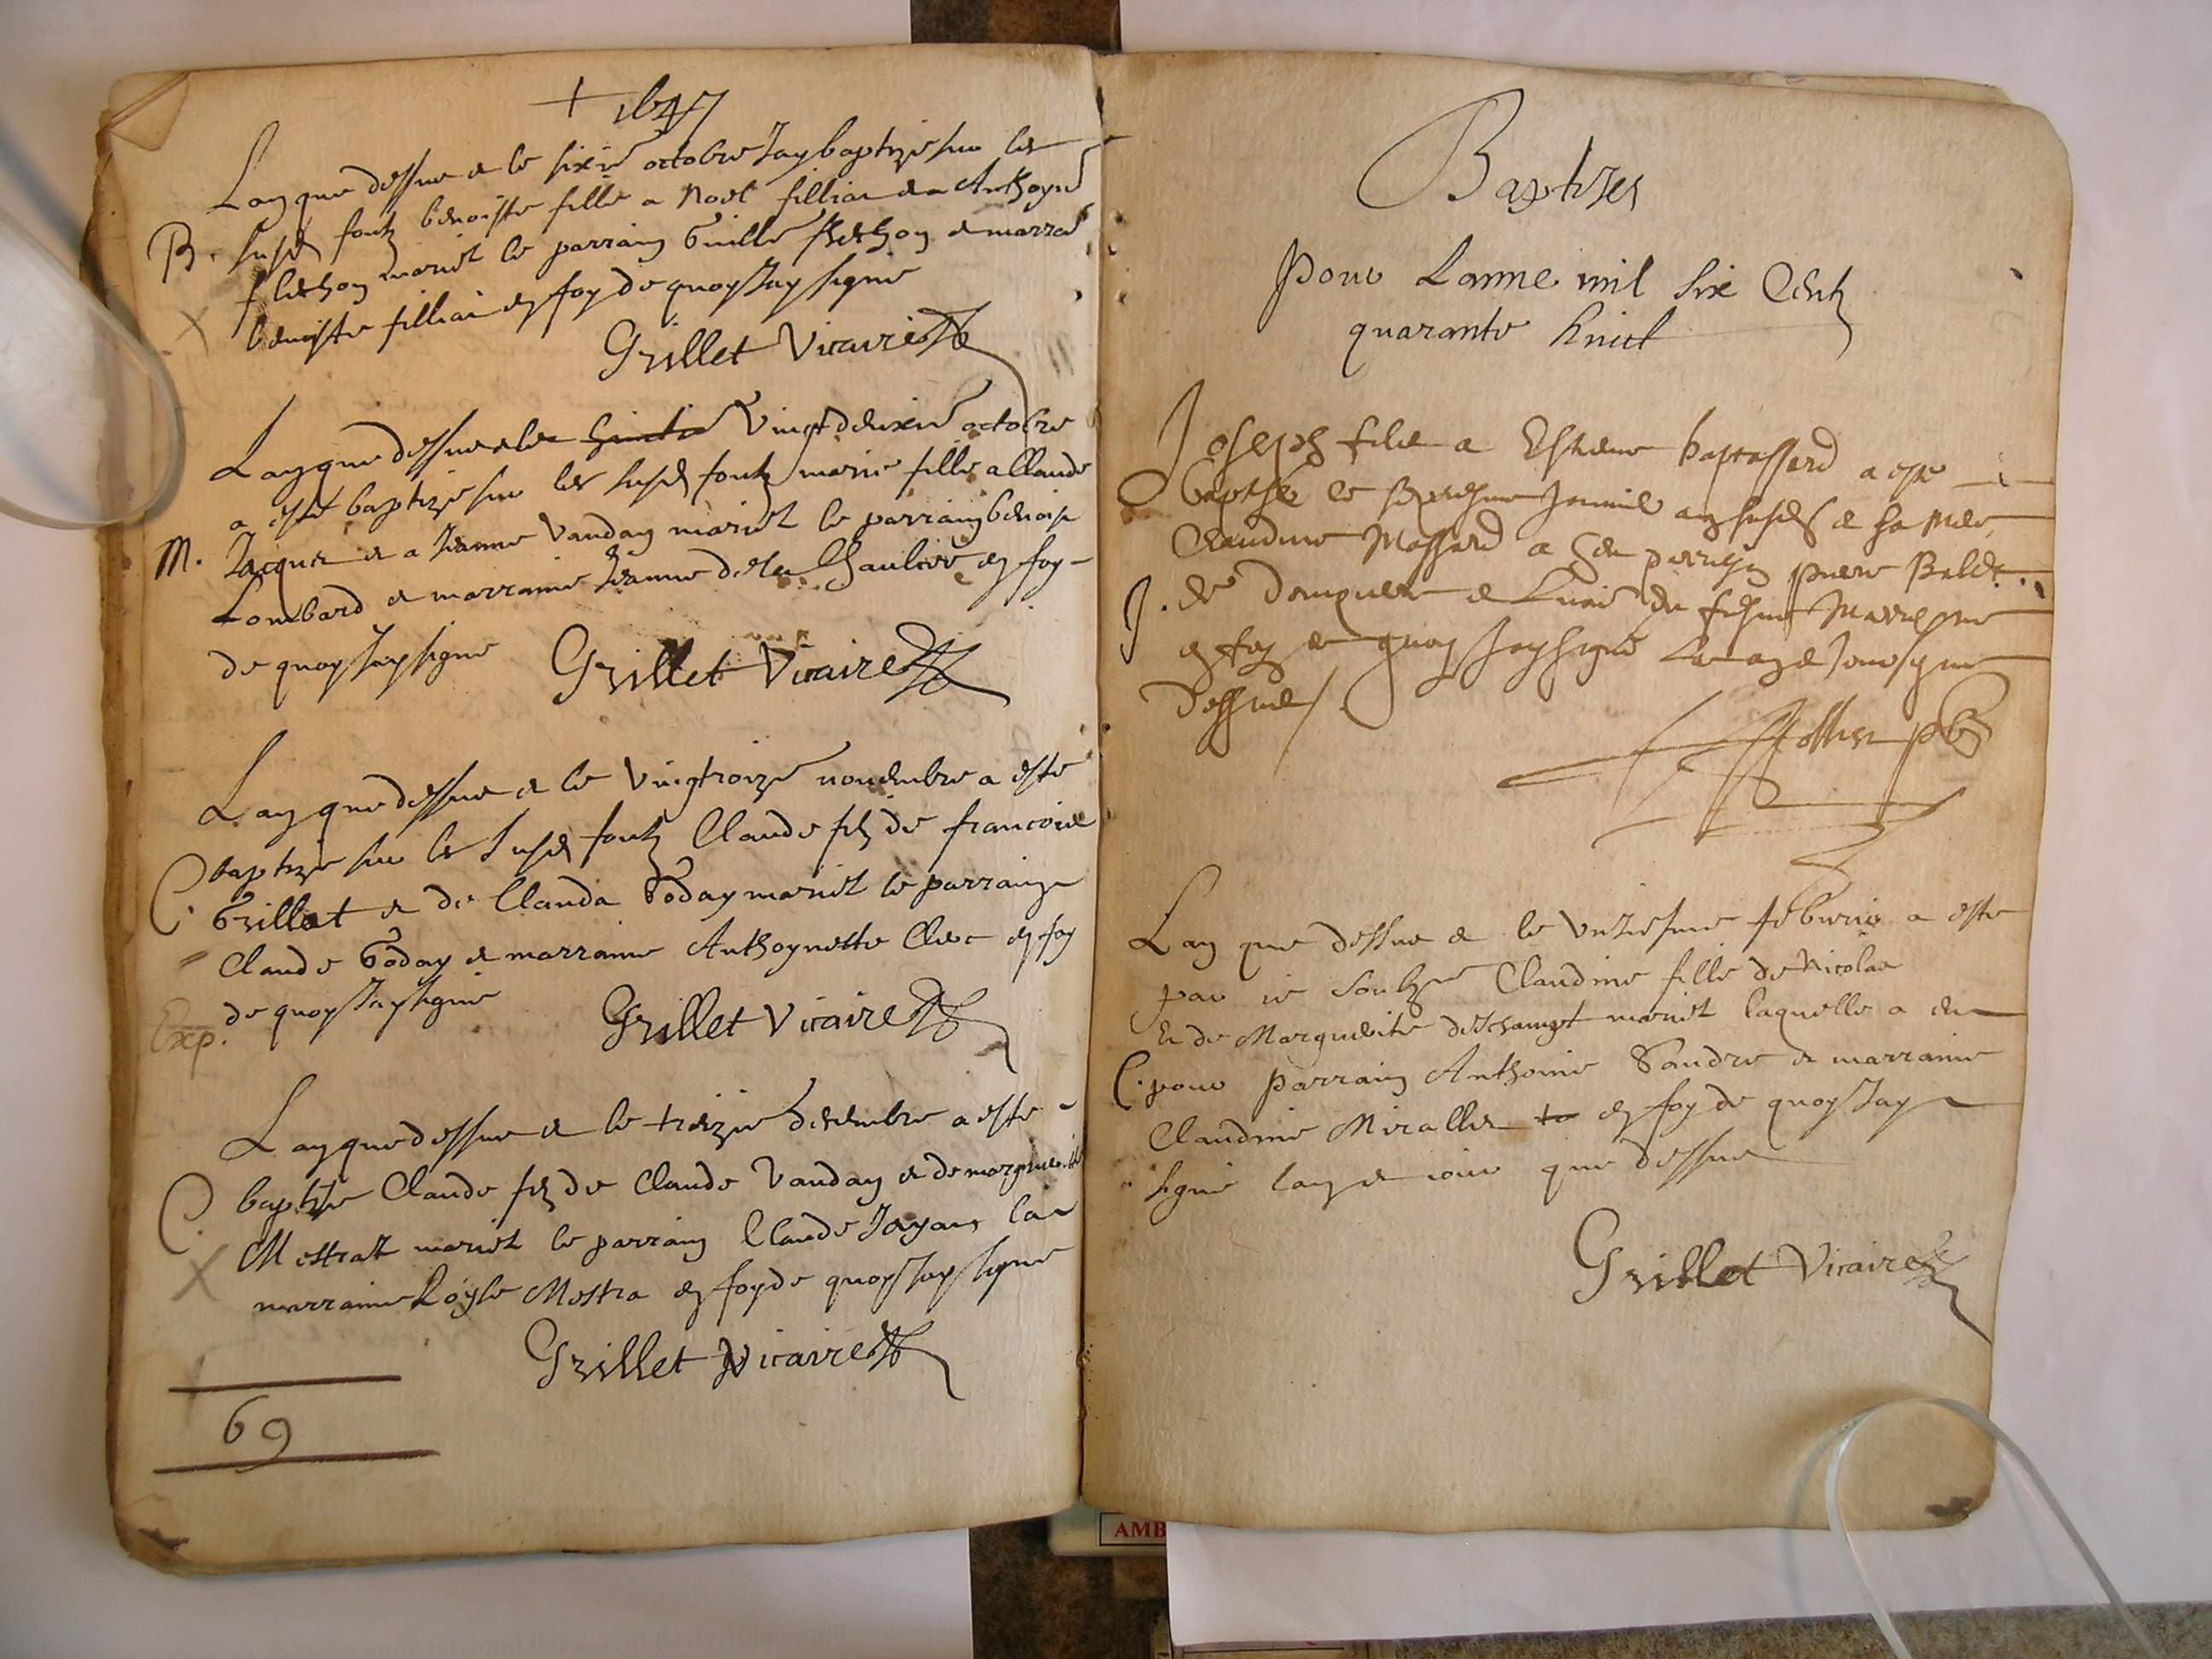 + 1647
Lan que dessus et le sixie octobre Jay baptize sur les
B. susd fontz benoiste fille a Noel filliat et a Anthoyne
flechon mariet le parrain Guille flechon et marrae
benoiste filliat en foy de quoy Jay signe
Grillet Vicaire
Lan que dessus et le Vingt deuxie octobre
a esté baptize sur les susd fontz marie fille a Claude
M. Jacquet et a Jeanne Vauday mariet le parrain benoist
Lombard et marraine Jeanne de la en foy
de quoy Jay signe Grillet Vicaire
Lan que dessus et le Vingtroize nouembre a esté
C. baptize sur les susd fontz Claude filz de francois
Grillet et de Clauda Goday mariet le parrain
Claude Goday et marraine Anthoynette Clerc en foy
de quoy Jay signe Grillet Vicaire
Exp.
Lan que dessus et le treizie decembre a esté
C. baptize Claude filz de Claude Vauday et de marguerite
Mestrat mariet le parrain Claude la
marraine Loyse Mestra en foy de quoy Jay signe
Grillet Vicaire
69
Baptizes
pour Lanne mil six Centz
quarante huict
Joseph filz a Estienne a esté
baptisé le Jenuier et sa mere
Claudine Massard a heu perreyn piere
J. de et
en foy de quoy Jay signé Lan et Jour que
dessus
pbr
Lan que dessus et le Unziesme feburier a esté
par ie soubzne Claudine fille de Nicolas
Et de Marguerite deschampt mariet laquelle a eu
C. pour parrain Anthoine Gandre et marraine
Claudine Mirallie en foy de quoy Jay
signé lan et iour que dessus
Grillet Vicaire
AMB